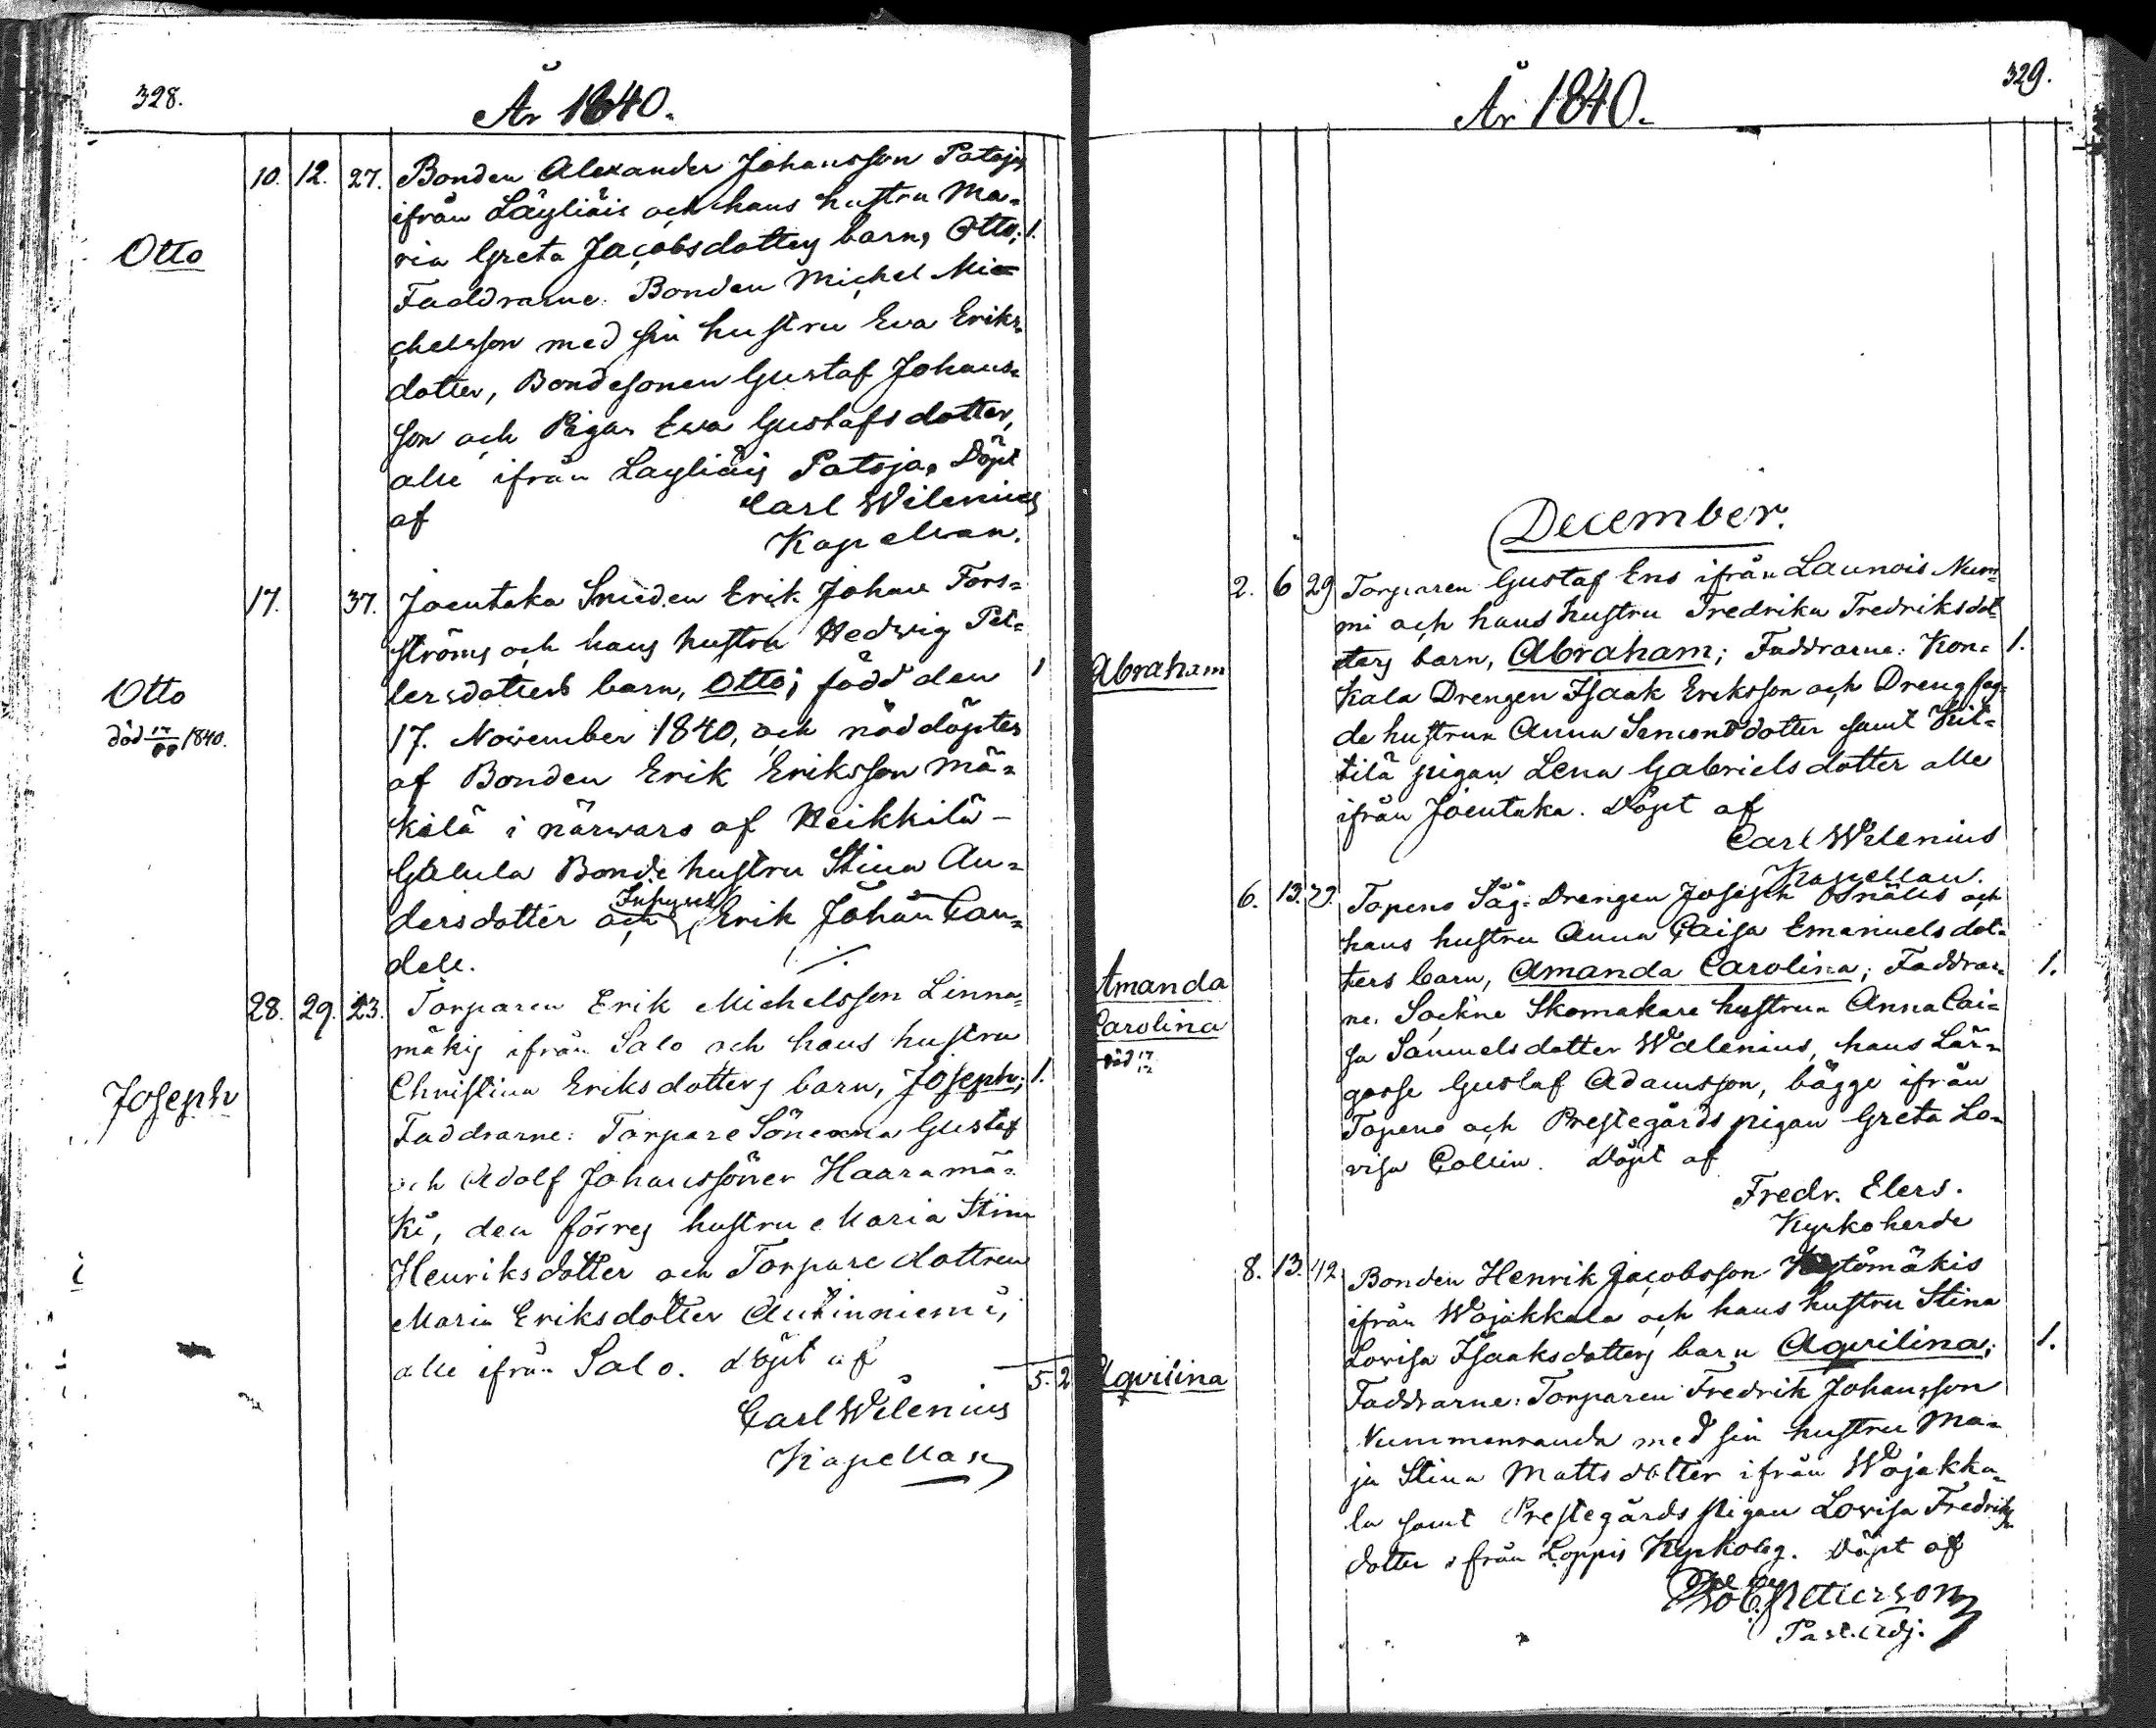 328.
År 1840.
10. 12. 27. Bonden Alexander Johansson Patojas
ifrån Läyliäis och hans hustru Ma=
Otto
ria Greta Jacobsdotters barn, Otto; 1.
Faddrarne: Bonden Michel Mi=
chelsson med sin hustru Eva Eriks=
dotter, Bondesonen Gustaf Johans=
son och Pigan Ewa Gustafsdotter,
alle ifrån Layliäis Patoja. Döpt
af Carl Wilenius
Kapellan.
17. 37. Joentaka Smeden Erik Johan Fors=
ströms och hans hustru Hedwig Pet=
Otto
lersdotters barn, Otto; född den 1
död 17/11 1840.
17. November 1840, och nöddöptes
af Bonden Erik Eriksson Mä=
kilä i närwaro af Heikkilä-
Galula Bonde hustru Stina An=
dersdotter och Erik Johan Can=
dell. ./.
28. 29. 23. Torparen Erik Michelsson Linna=
mäkis ifrån Salo och hans hustru
Joseph
Christina Eriksdotters barn, Joseph; 1.
Faddrarne: Torpare Sönerna Gustaf
och Adolf Johanssöner Haaramä=
ki, den förres hustru Maria Stina
Henriksdotter och Torpare dottren
Maria Eriksdotter Autinniemi,
alle ifrån Salo. döpt af
5. 2
Carl Wilenius
Kapellan
329.
År 1840.
December.
2. 6 29 Torparen Gustaf Ens ifrån Launois Num=
mi och hans hustru Fredrika Fredriksdot=
Abraham
ters barn, Abraham; Faddrarne: Kon= 1.
kala Drengen Isaak Eriksson och Dreng sag=
de hustrun Anna Simonsdotter samt Kit=
tilä pigan Lena Gabrielsdotter alle
ifrån Joentaka. Döpt af
Carl Wilenius
Kapellan.
6. 13. 29. Topeno Såg-Drengen Joseph Snälls och
hans hustru Anna Caisa Emanuelsdot=
Amanda
Carolina
ters barn, Amanda Carolina; Faddrar= 1.
ne: Sockne Skomakare hustrun Anna Cai=
död 17/12
sa Samuelsdotter Walenius, hans Lär=
gosse Gustaf Adamsson, bägge ifrån
Topeno och Prestegårds pigan Greta Lo=
visa Collin. Döpt af
Fredr. Elers.
Kyrkoherde
8. 13. 42. Bonden Henrik Jacobsson Kytömäkis
ifrån Wojakkala och hans hustru Stina
Aqvilina
Lovisa Isaaksdotters barn Aqvilina; 1.
Faddrarne: Torparen Fredrik Johansson
Nummenranda med sin hustru Ma=
ja Stina Mattsdotter ifrån Wojakka=
la samt Prestegårds Pigan Lovisa Fredriks
dotter ifrån Loppis Kyrkoby. Döpt af
Petterson
Past. Adj.